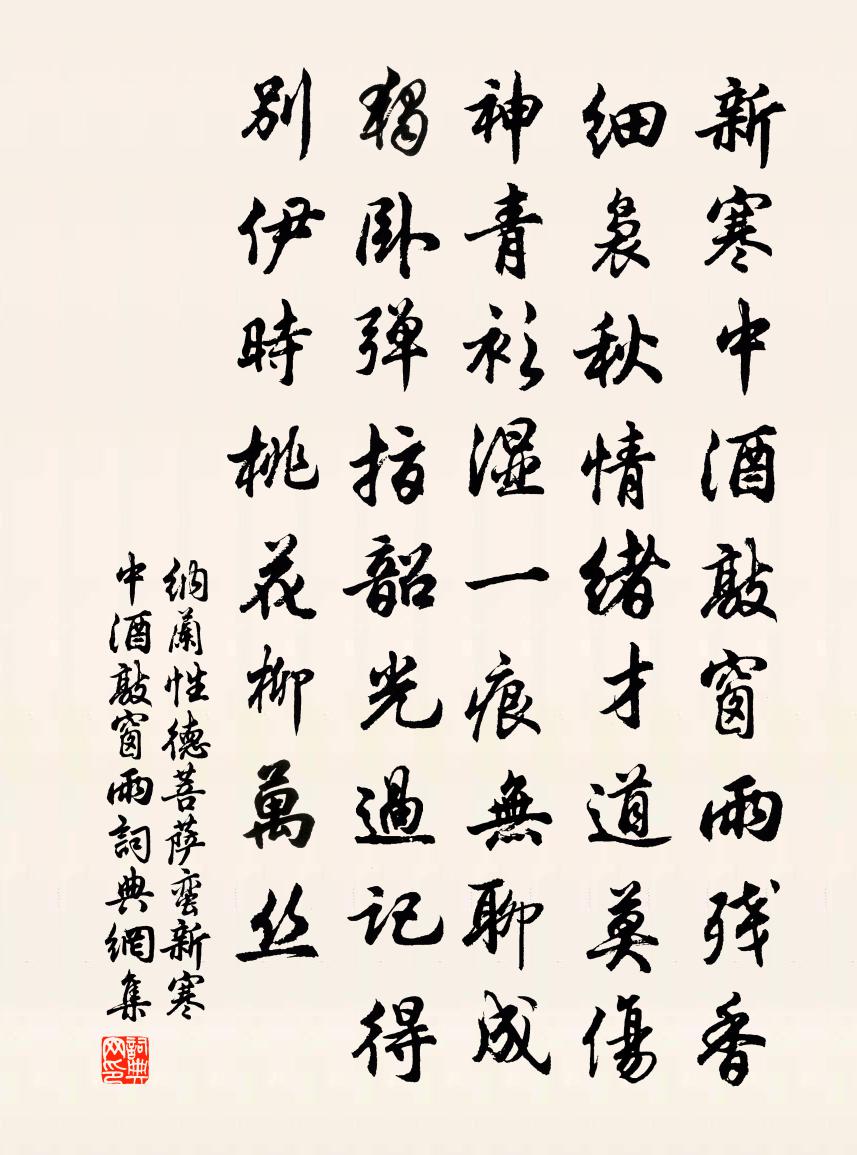 新寒中酒敲窗雨残香
细袅秋情绪才道莫傷
神青衫湿一痕無聊成
獨卧弹指韶光過记得
别伊時桃花柳萬丝
纳蘭性德菩萨蛮新寒
中酒敲窗雨詞典網集
詞典
网印